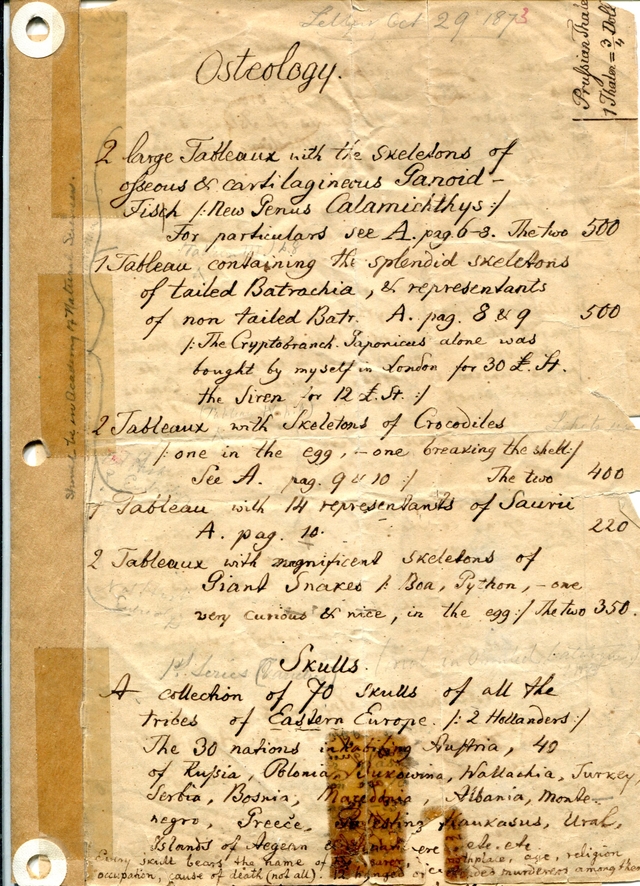 Letter Oct 29 1873
Prussian Thaler
1 Thaler = 3/4 Doll
Osteology.
2 large Tableaux with the skeletons of
osseous & cartilagineous Ganoid-
Fisch /: New Genus Calamichthys :/
For particulars see A. pag. 6-8. The two 500
1 Tableau containing the splendid skeletons
of tailed Batrachia, & representants
of non tailed Batr. A. pag. 8 & 9 500
/: The Cryptobranch. Japonicus alone was
bought by myself in London for 30 £. St.
the Siren for 12 £. St. :/
2 Tableaux with Skeletons of Crocodiles
/: one in the egg, - one breaking the shell :/
See A. pag. 9 & 10 :/ The two 400
1 Tableau with 14 representants of Saurii
A. pag. 10. 220
2 Tableaux with magnificent skeletons of
Giant Snakes /: Boa, Python, - one
very curious & nice, in the egg :/ The two 350.
Skulls.
1st Series
A collection of 70 skulls of all the
tribes of Eastern Europe. /: 2 Hollanders :/
The 30 nations inhabiting Austria, 40
of Russia, Polonia, Bukowina, Wallachia, Turkey,
Serbia, Bosnia, Macedonia, Albania, Monte-
negro, Greece, Kaukasus, Ural,
Islands of Aegean & etc. etc.
Every skull bears the name of age, religion
occupation, cause of death (not all). murderers among them